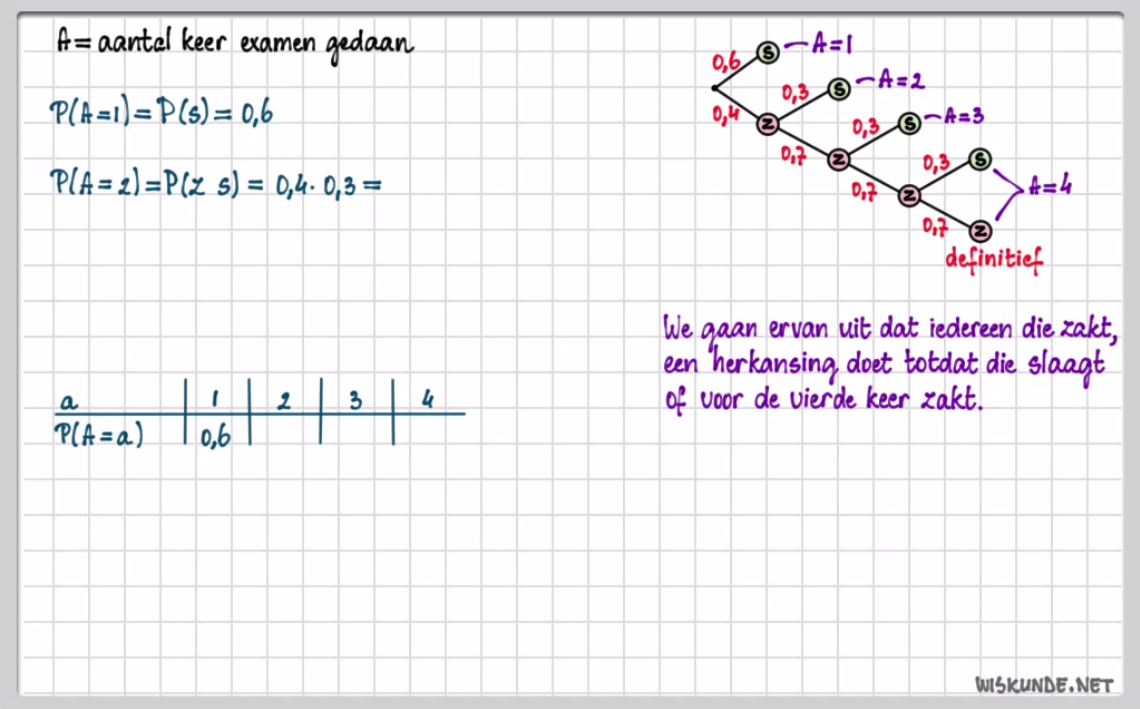 A = aantal keer examen gedaan
P(A=1) = P(s) = 0,6
P(A=2) = P(z s) = 0,4 · 0,3 =
a 1 2 3 4
P(A=a) 0,6
0,6 s A=1
0,4 z 0,3 s A=2
0,7 z 0,3 s A=3
0,7 z 0,3 s A=4
0,7 z
definitief
We gaan ervan uit dat iedereen die zakt,
een herkansing doet totdat die slaagt
of voor de vierde keer zakt.
WISKUNDE.NET